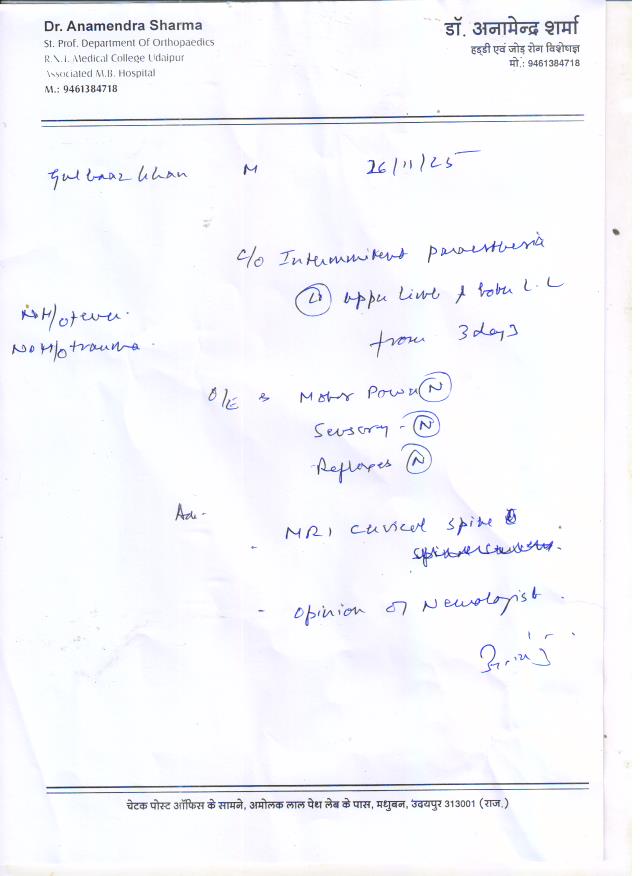 Dr. Anamendra Sharma
St. Prof. Department Of Orthopaedics
R.N.T. Medical College Udaipur
Associated M.B. Hospital
M.: 9461384718
डॉ. अनामेन्द्र शर्मा
हड्डी एवं जोड़ रोग विशेषज्ञ
मो.: 9461384718
Gulbaaz Khan M 26/11/25
c/o Intermmitent paraesthesia
(L) upper limb & both L.L
from 3 days
No H/o fever.
No H/o trauma.
O/E Motor Power (N)
Sensory - (N)
Reflexes (N)
Adv-
- MRI cervical spine
- opinion of Neurologist.
चेटक पोस्ट ऑफिस के सामने, अमोलक लाल पेथ लेब के पास, मधुबन, उदयपुर 313001 (राज.)